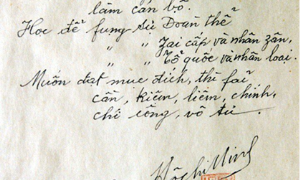 làm cán bộ.
Học để fụng sự Đoàn thể
" " zai cấp và nhân zân,
" " Tổ quốc và nhân loại.
Muốn đạt mục đích, thì fải
cần, kiệm, liêm, chính,
chí công, vô tư.
Hồ Chí Minh